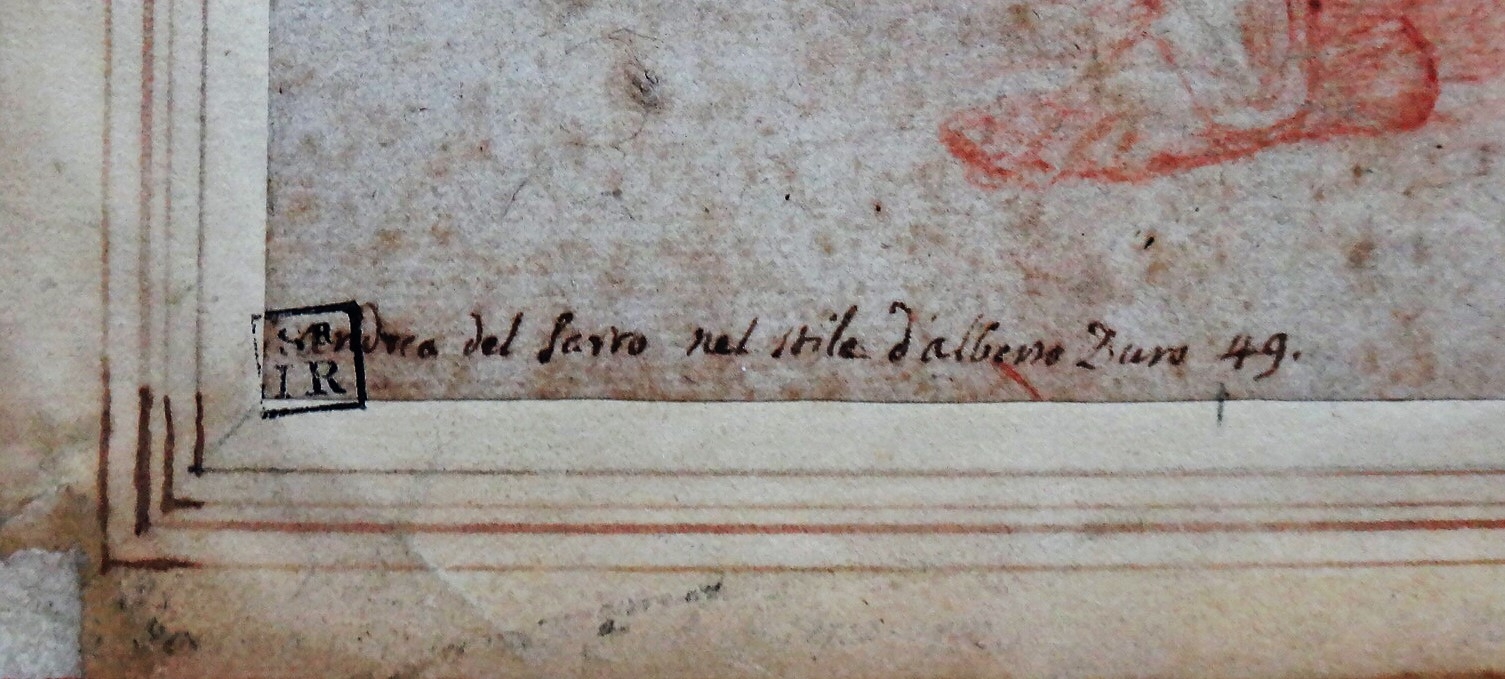 Andrea del Sarto nel stile d'alberto Duro 49.
I R